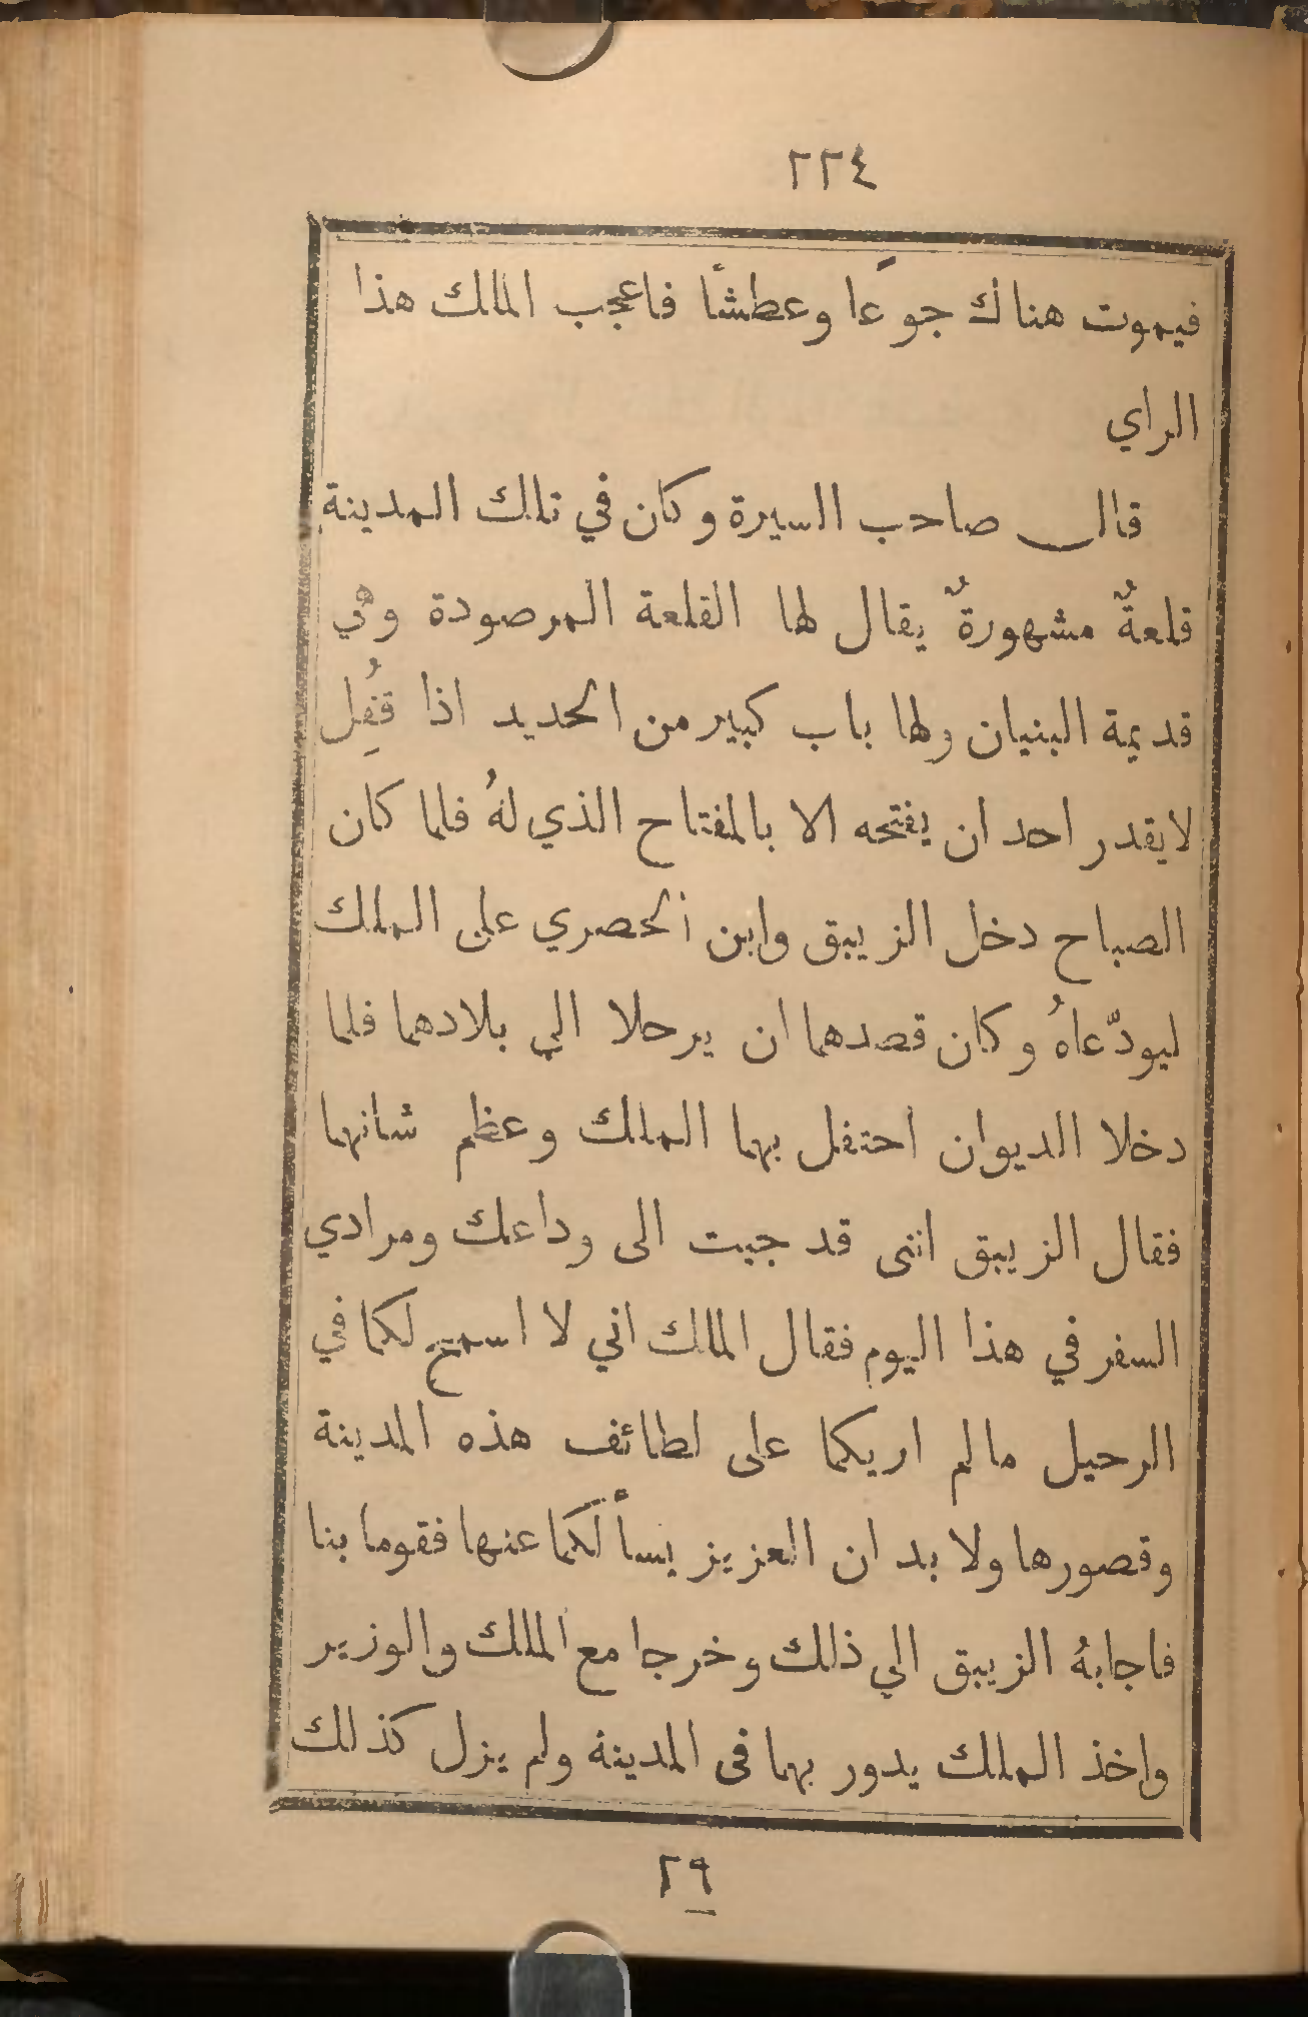 ٢٢٤
فيموت هناك جوعًا وعطشًا فاعجب الملك هذا
الراي
قال صاحب السيرة وكان في تلك المدينة
قلعةٌ مشهورةٌ يقال لها القلعة المرصودة وهي
قديمة البنيان ولها باب كبير من الحديد اذا قُفِل
لايقدر احد ان يفتحه الا بالمفتاح الذي لهُ فلما كان
الصباح دخل الزيبق وابن الحصري على الملك
ليودّعاهُ وكان قصدهما ان يرحلا الي بلادهما فلما
دخلا الديوان احتفل بهما الملك وعظم شانهما
فقال الزيبق اننى قد جيت الى وداعك ومرادي
السفر في هذا اليوم فقال الملك اني لا اسمح لكما في
الرحيل مالم اريكما على لطائف هذه المدينة
وقصورها ولا بد ان العزيز يسألكما عنها فقوما بنا
فاجابهُ الزيبق الي ذلك وخرجا مع الملك والوزير
واخذ الملك يدور بهما فى المدينة ولم يزل كذلك
٢٩